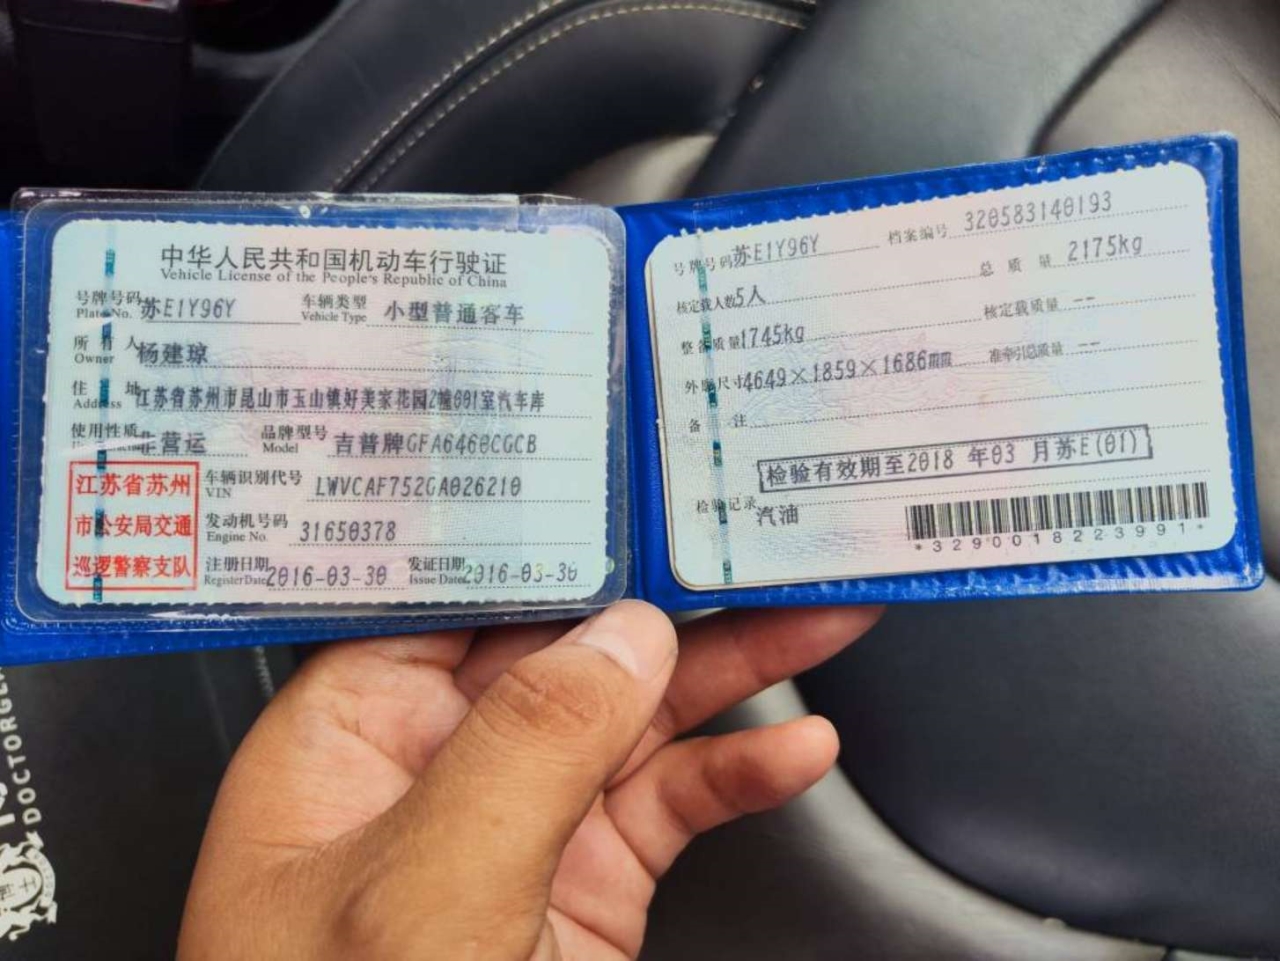 中华人民共和国机动车行驶证
Vehicle License of the People's Republic of China
号牌号码 苏E1Y96Y 车辆类型 小型普通客车
Plate No. Vehicle Type
所有人 杨建琼
Owner
住址 江苏省苏州市昆山市玉山镇好美家花园2幢001室汽车库
Address
使用性质 非营运 品牌型号 吉普牌GFA6460CGCB
Model
江苏省苏州
市公安局交通
巡逻警察支队
车辆识别代号 LWVCAF752GA026210
VIN
发动机号码 31650378
Engine No.
注册日期 2016-03-30 发证日期 2016-03-30
Register Date Issue Date
号牌号码 苏E1Y96Y 档案编号 320583140193
核定载人数 5人 总质量 2175kg
整备质量 1745kg 核定载质量 --
外廓尺寸 4649×1859×1686mm 准牵引总质量 --
备注
检验有效期至2018年03月苏E(01)
检验记录
汽油
*3290018223991*
DOCTORGE